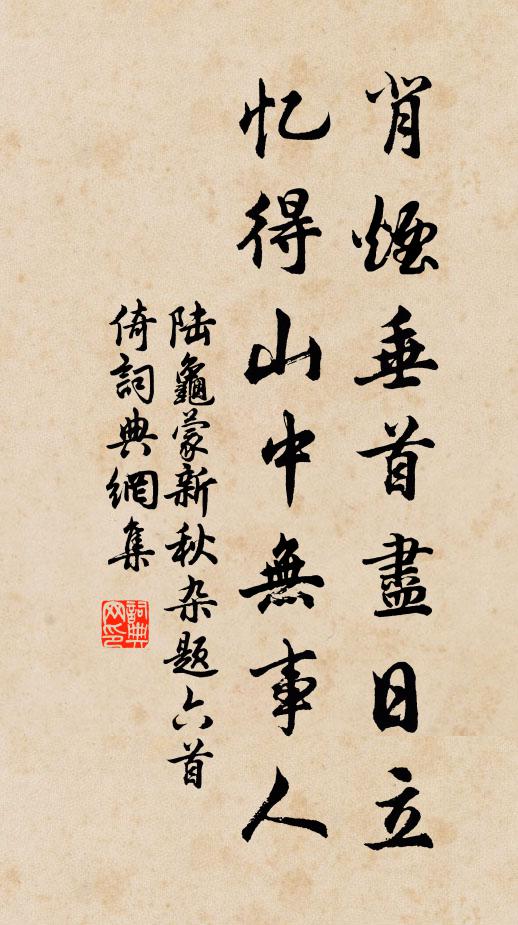 背煙垂首盡日立
忆得山中無事人
陆龜蒙新秋杂题六首
倚詞典網集
詞典网印